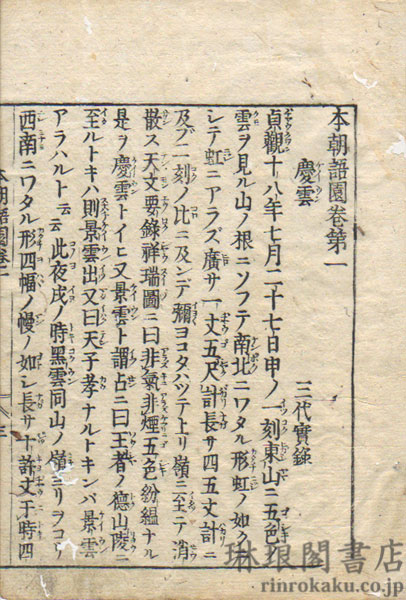 本朝語園卷第一
慶雲 三代實録
貞觀十八年七月二十七日申ノ一刻東山ニ五色ノ
雲ヲ見ル山ノ根ニソフテ南北ニワタル形虹ノ如クニ
シテ虹ニアラズ廣サ一丈五尺計長サ四五丈計ニ
及ブ二刻ノ比ニ及ンデ彌ヨコタハツテ上リ嶺ニ至テ消
散ス天文要錄祥瑞圖ニ曰非氣非煙五色紛縕ナル
是ヲ慶雲トイヒ又景雲ト謂占ニ曰王者ノ德山陵ニ
至ルトキハ則景雲出又曰天子孝ナルトキンバ景雲
アラハルト云云此夜戌ノ時黒雲同山ノ嶺ヨリヲコリ
西南ニワタル形四幅ノ幔ノ如シ長サ十許丈于時四
本朝語園卷
琳琅閣書店
rinrokaku.co.jp